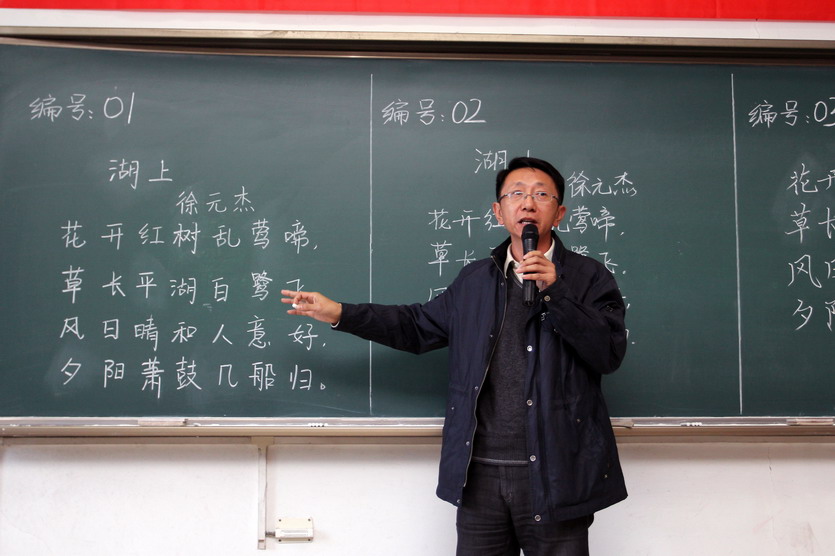 编号:01
湖上
徐元杰
花开红树乱莺啼,
草长平湖白鹭飞
风日晴和人意好,
夕阳萧鼓几船归。
编号:02
湖上
徐元杰
花开红 莺啼,
草长 鹭飞.
编号:03
花开
草长
风日
夕阳